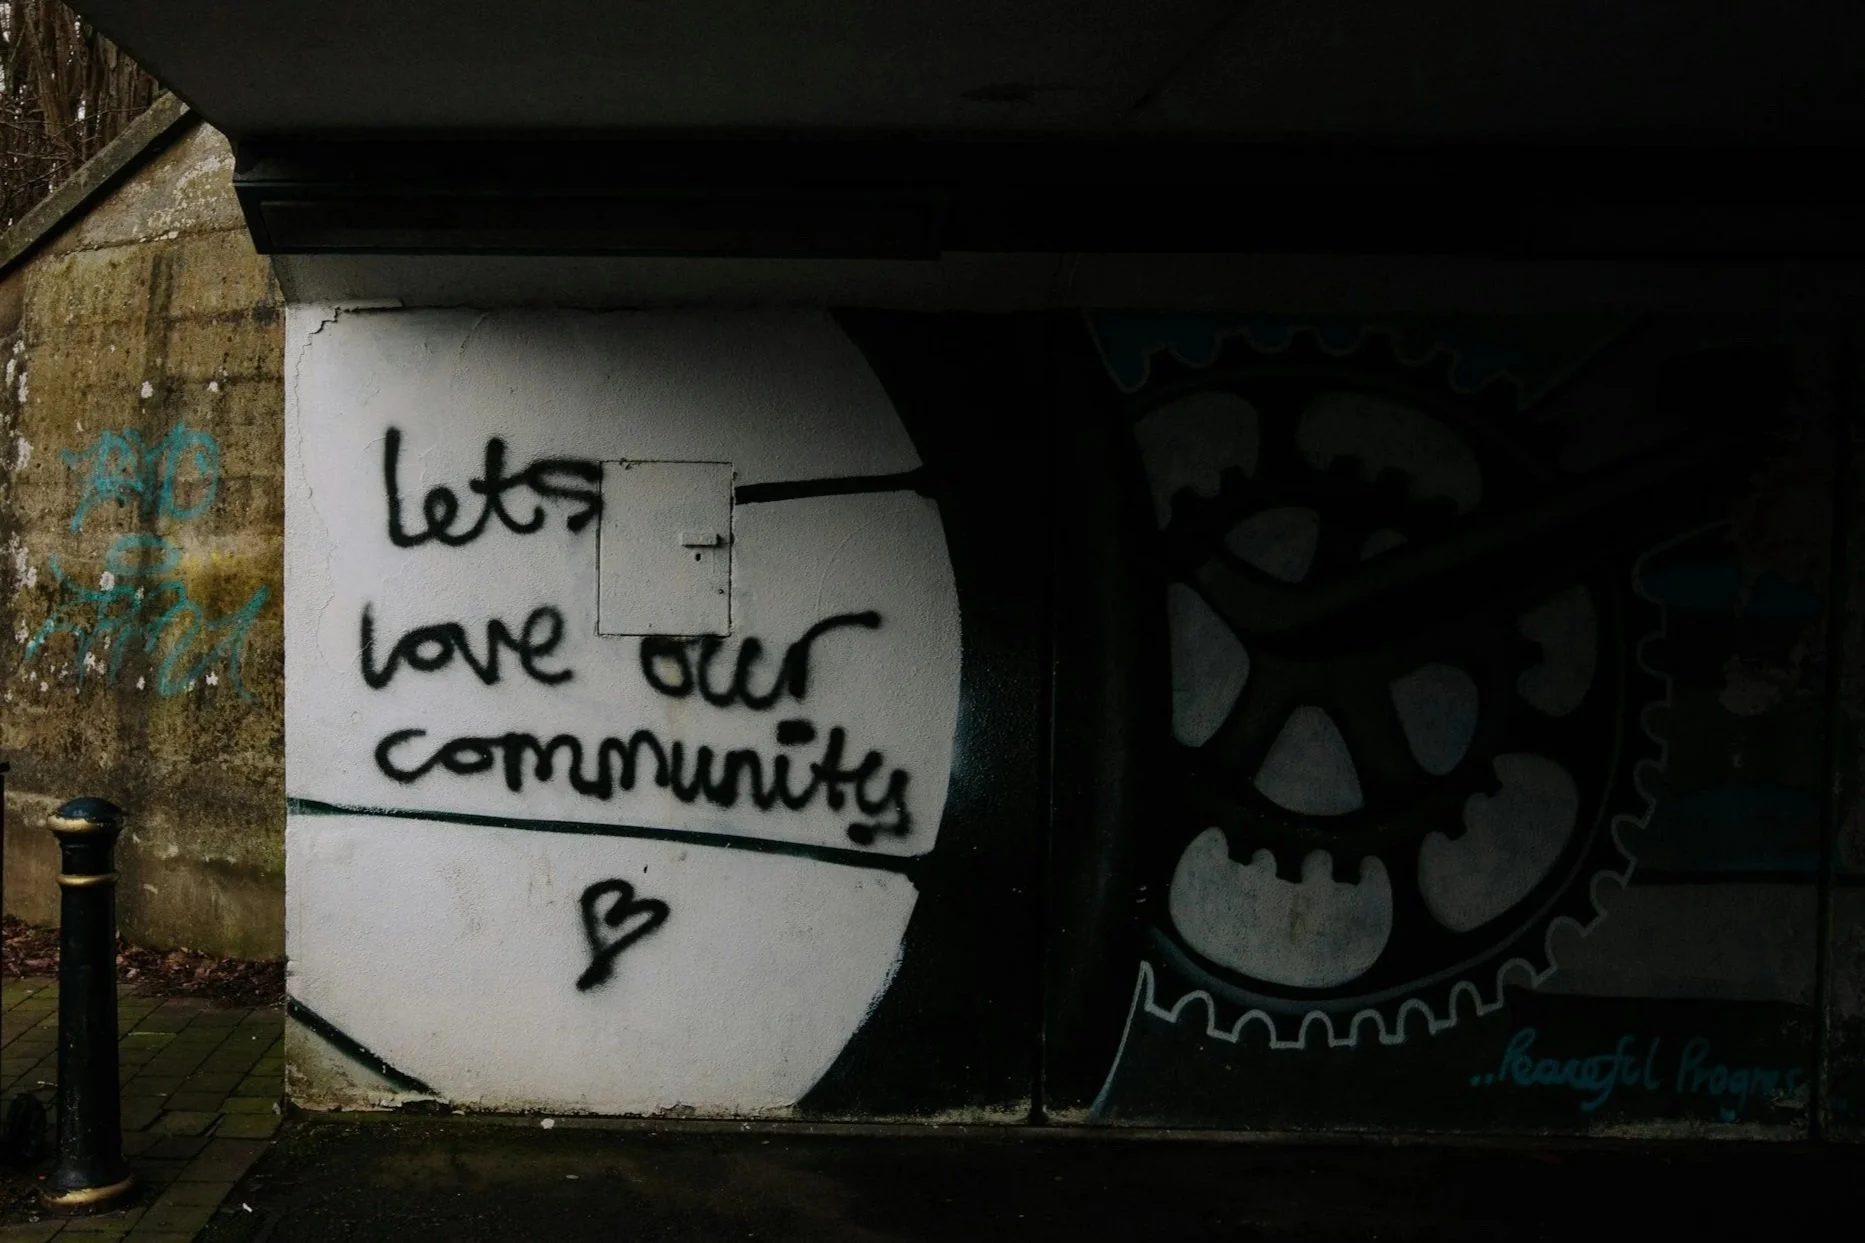 lets
love our
community
..Peaceful Progress